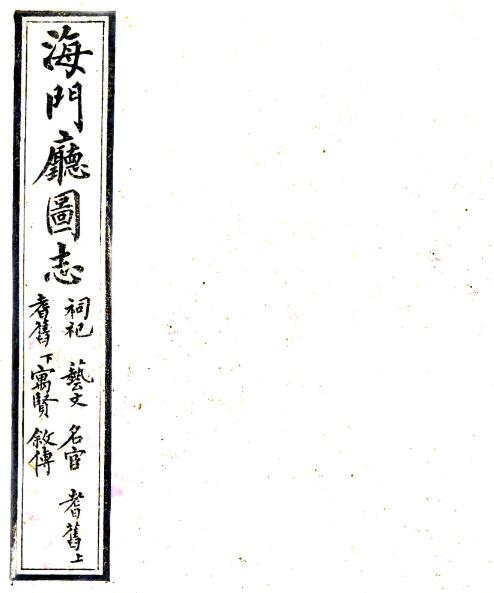 海門廳圖志
祠祀 藝文 名宦 耆舊上
耆舊下 寓賢 敘傳